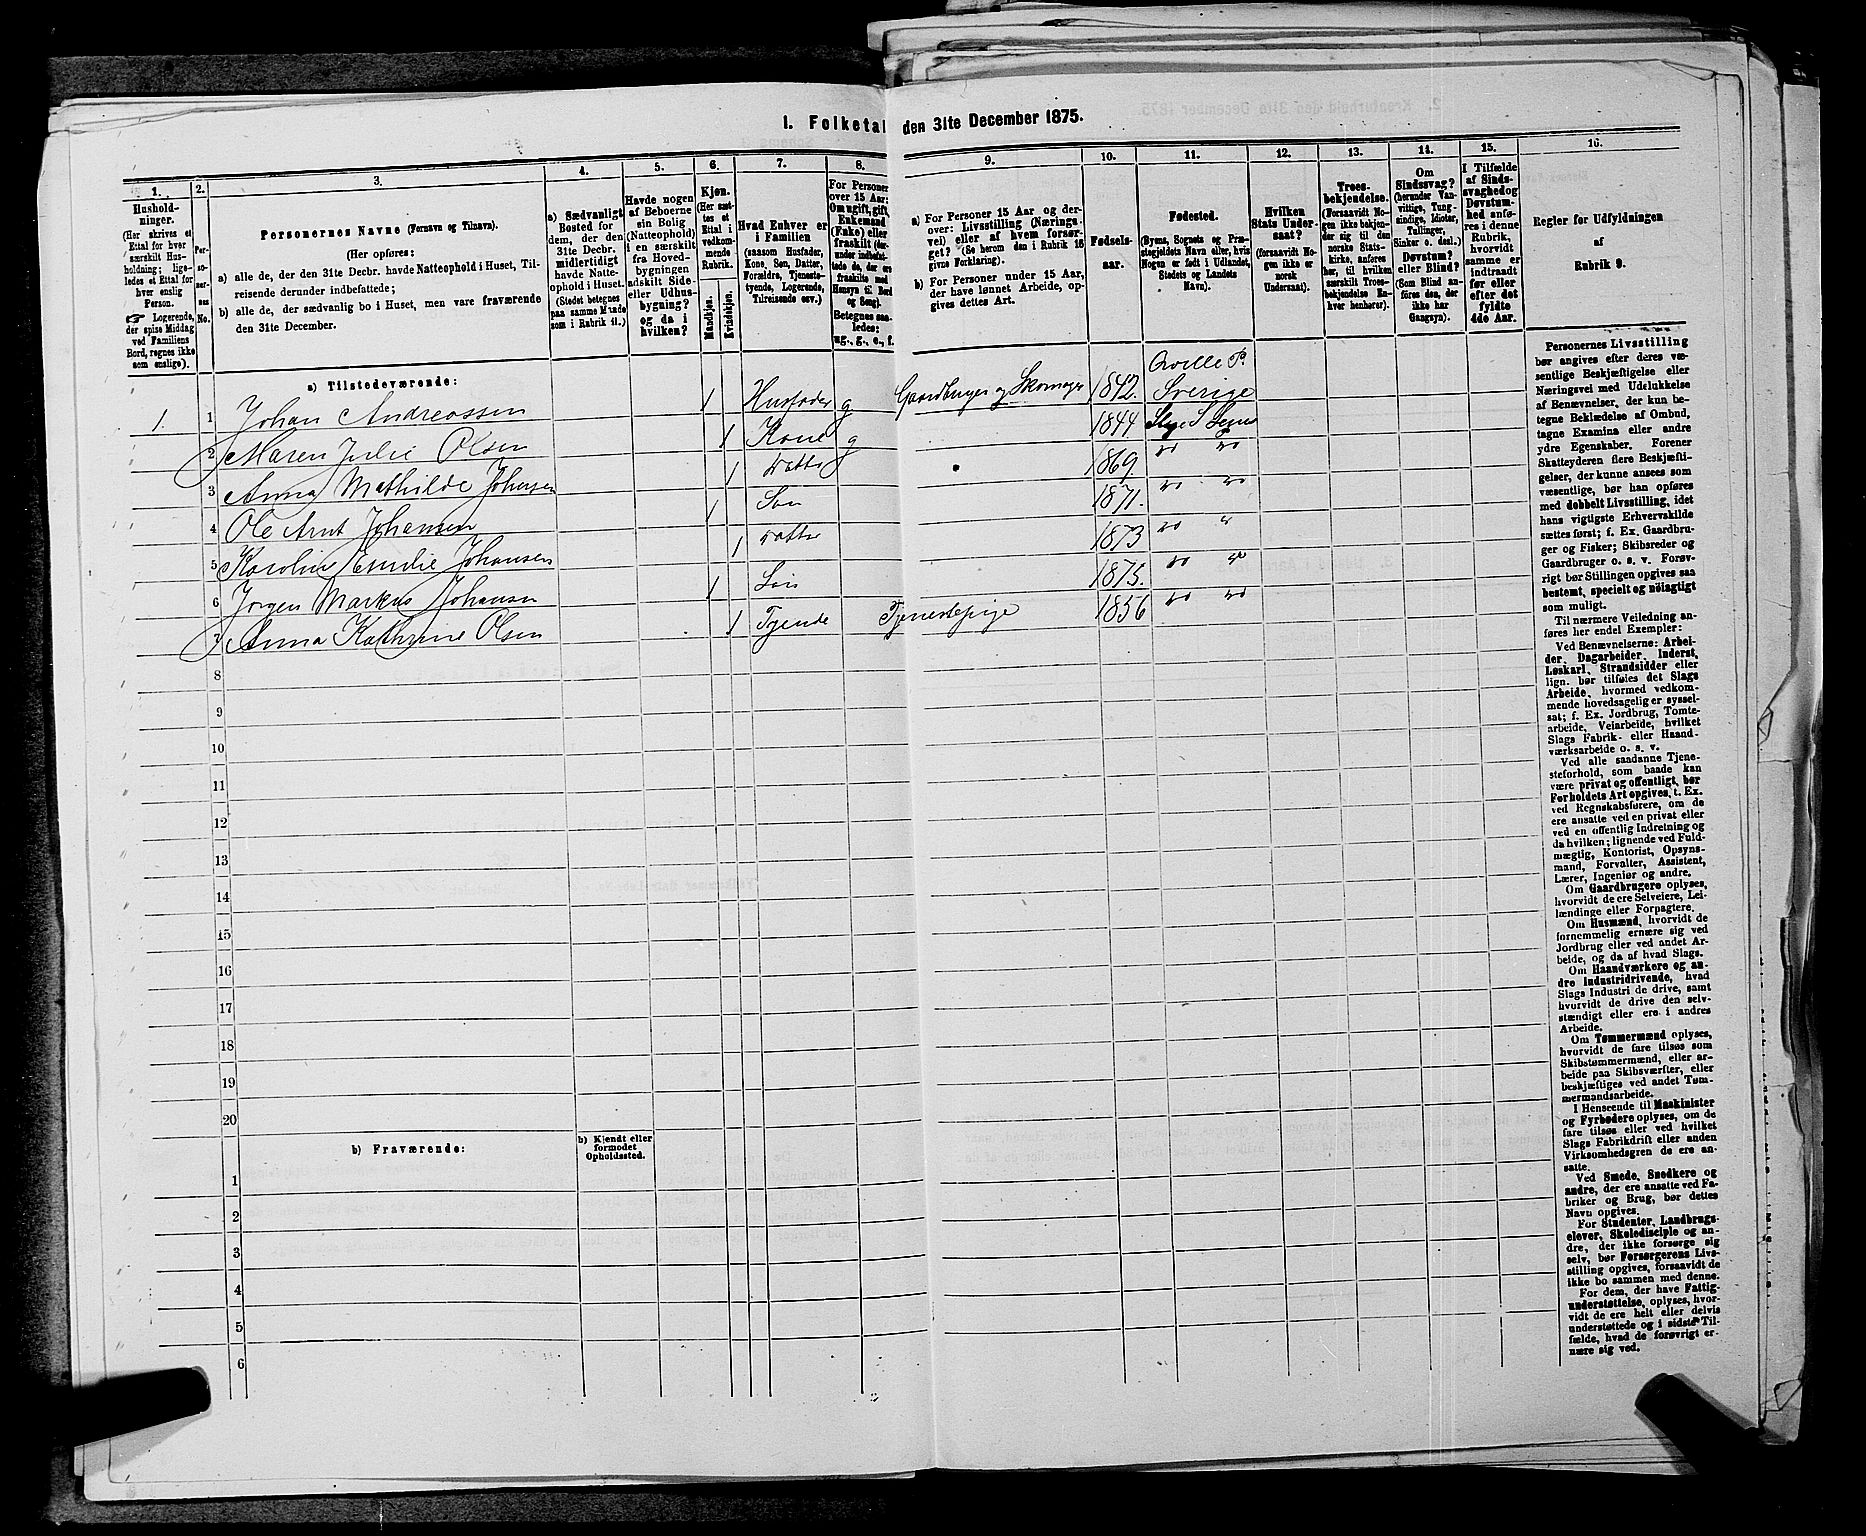 I. Folketal den 31te December 1875.
1.
2.
3.
4.
5.
6.
7.
8.
9.
10.
11.
12.
13.
14.
15.
16.
Hushold-
ninger.
(Her skrives et
Ettal for hver
særskilt Hus-
holdning; lige-
ledes et Ettal for
hver enslig
Person.
☞ Logerende,
der spise Middag
ved Familiens
Bord, regnes ikke
som enslige).
Per-
so-
ner-
nes
No.
Personernes Navne (Fornavn og Tilnavn).
(Her opføres:
a) alle de, der den 31te Decbr. havde Natteophold i Huset, Til-
reisende derunder indbefattede;
b) alle de, der sædvanlig bo i Huset, men vare fraværende
den 31te December.
a) Sædvanligt
Bosted for
dem, der den
31te Decbr.
midlertidigt
havde Natte-
ophold i Huset.
(Stedet betegnes
paa samme Maade
som i Rubrik 11.)
Havde nogen
af Beboerne
sin Bolig
(Natteophold)
i en særskilt
fra Hoved-
bygningen
adskilt Side-
eller Udhus-
bygning?
og da i
hvilken?
Kjøn.
(Her sæt-
tes et
Ettal i
vedkom-
mende
Rubrik.
Mandkjøn.
Kvindekjøn.
Hvad Enhver er
i Familien
(saasom Husfader,
Kone, Søn, Datter,
Forældre, Tjeneste-
tyende, Logerende,
Tilreisende osv.)
For Personer
over 15 Aar:
Om ugift, gift,
Enkemand
(Enke) eller
fraskilt (der-
under indbefat-
tede de, der ere
fraskilte med
Hensyn til Bord
og Seng).
Betegnes saa-
ledes:
ug., g., e., f.
a) For Personer 15 Aar og der-
over: Livsstilling (Nærings-
vei) eller af hvem forsør-
get? (Se herom den i Rubrik 16
givne Forklaring).
b) For Personer under 15 Aar,
der have lønnet Arbeide, op-
gives dettes Art.
Fødsels-
aar.
Fødested.
(Byens, Sognets og Præ-
stegjeldets Navn eller, hvis
Nogen er født i Udlandet,
Stedets og Landets
Navn).
Hvilken
Stats Under-
saat?
(forsaavidt No-
gen ikke er
norsk
Undersaat).
Troes-
bekjendelse.
(Forsaavidt No-
gen ikke bekjen-
der sig til den
norske Stats-
kirke, anføres
her, til hvilken
særskilt Troes-
bekjendelse En-
hver henhører).
Om
Sindssvag?
(herunder Van-
vittige, Tung-
sindige, Idioter,
Tullinger,
Sinker o. desl.)
Døvstum?
eller Blind?
(Som Blind an-
føres den, der
ikke har
Gangsyn).
I Tilfælde
af Sinds-
svaghed og
Døvstum-
hed anfø-
res i denne
Rubrik,
hvorvidt
samme er
indtraadt
før eller
efter det
fyldte
4de Aar.
Regler for Udfyldningen
af
Rubrik 9.
a) Tilstedeværende:
1. 1 Johan Andreassen 1 Husfader g Gaardbruger og Skomager 1842. Qville P. Sverige
2 Maren Julie Olsen 1 Kone g 1844
3 Anna Mathilde Johansen 1 Datter 1869
4 Ole Arnt Johansen 1 Søn 1871.
5 Karoline Emilie Johansen 1 Datter 1873
6 Jørgen Markus Johansen 1 Søn 1875.
7 Anna Kathrine Olsen 1 Tyende Tjenestepige 1856
8
9
10
11
12
13
14
15
16
17
18
19
20
b) Fraværende:
b) Kjendt eller
formodet
Opholdssted.
1
2
3
4
5
6
Personernes Livsstilling
bør angives efter deres væ-
sentlige Beskjæftigelse eller
Næringsvei med Udelukkelse
af Benævnelser, der kun be-
tegne Beklædelse af Ombud,
tagne Examina eller andre
ydre Egenskaber. Forener
Skatteyderen flere Beskjæfti-
gelser, der kunne ansees som
væsentlige, bør han opføres
med dobbelt Livsstilling, idet
hans vigtigste Erhvervskilde
sættes først; f. Ex. Gaardbru-
ger og Fisker; Skibsreder og
Gaardbruger o. s. v. Forøv-
rigt bør Stillingen opgives saa
bestemt, specielt og nøiagtigt
som muligt.
Til nærmere Veiledning an-
føres her endel Exempler:
Ved Benævnelserne: Arbei-
der, Dagarbeider, Inderst,
Løskarl, Strandsidder eller
lign. bør tilføies det Slags
Arbeide, hvormed vedkom-
mende hovedsagelig er syssel-
sat; f. Ex. Jordbrug, Tomte-
arbeide, Veiarbeide, hvilket
Slags Fabrik- eller Haand-
værksarbeide o. s. v.
Ved alle saadanne Tjene-
steforhold, som baade kan
være privat og offentligt, bør
Forholdets Art opgives, t. Ex.
ved Regnskabsførere, om de
ere ansatte ved en privat eller
ved en offentlig Indretning og
da hvilken; lignende ved Fuld-
mægtig, Kontorist, Opsyns-
mand, Forvalter, Assistent,
Lærer, Ingeniør og andre.
Om Gaardbrugere oplyses,
hvorvidt de ere Selveiere, Lei-
lændinge eller Forpagtere.
Om Husmænd, hvorvidt de
fornemmelig ernære sig ved
Jordbrug eller ved andet Ar-
beide, og da af hvad Slags.
Om Haandværkere og an-
dre Industridrivende, hvad
Slags Industri de drive, samt
hvorvidt de drive den selv-
stændigt eller ere i andres
Arbeide.
Om Tømmermænd oplyses,
hvorvidt de fare tilsøs som
Skibstømmermænd, eller ar-
beide paa Skibsværfter, eller
beskjæftiges ved andet Tøm-
mermandsarbeide.
I Henseende til Maskinister
og Fyrbødere oplyses, om de
fare tilsøs eller ved hvilket
Slags Fabrikdrift eller anden
Virksomhedsgren de ere an-
satte.
Ved Smede, Snedkere og
andre, der ere ansatte ved Fa-
briker og Brug, bør dettes
Navn opgives.
For Studenter, Landbrugs-
elever, Skoledisciple og an-
dre, der ikke forsørge sig
selv, bør Forsørgerens Livs-
stilling opgives, forsaavidt de
ikke bo sammen med denne.
For dem, der have Fattig-
understøttelse, oplyses, hvor-
vidt de ere helt eller delvis
understøttede og i sidste Til-
fælde, hvad de forøvrigt er-
nære sig ved.